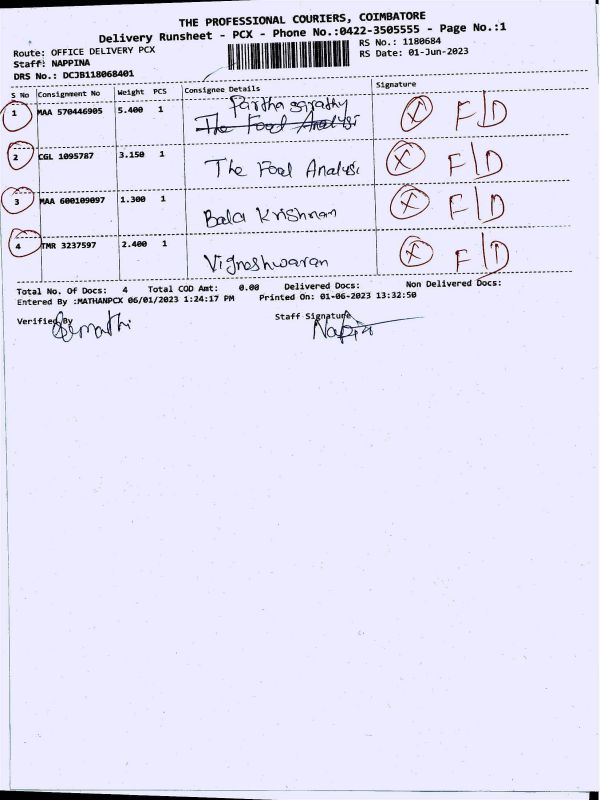 THE PROFESSIONAL COURIERS, COIMBATORE
Delivery Runsheet - PCX - Phone No.:0422-3505555 - Page No.:1
Route: OFFICE DELIVERY PCX
RS No.: 1180684
Staff: NAPPINA
RS Date: 01-Jun-2023
DRS No.: DCJB118068401
S No Consignment No Weight PCS Consignee Details Signature
1 MAA 570446905 5.400 1 Partha sarathy X F/D
The Food Analysi
2 CGL 1095787 3.150 1 The Food Analysi X F/D
3 MAA 600109097 1.300 1 Bala Krishnan X F/D
4 TMR 3237597 2.400 1 Vigneshwaran X F/D
Total No. Of Docs: 4 Total COD Amt: 0.00 Delivered Docs: Non Delivered Docs:
Entered By :MATHANPCX 06/01/2023 1:24:17 PM Printed On: 01-06-2023 13:32:50
Verified By Staff Signature